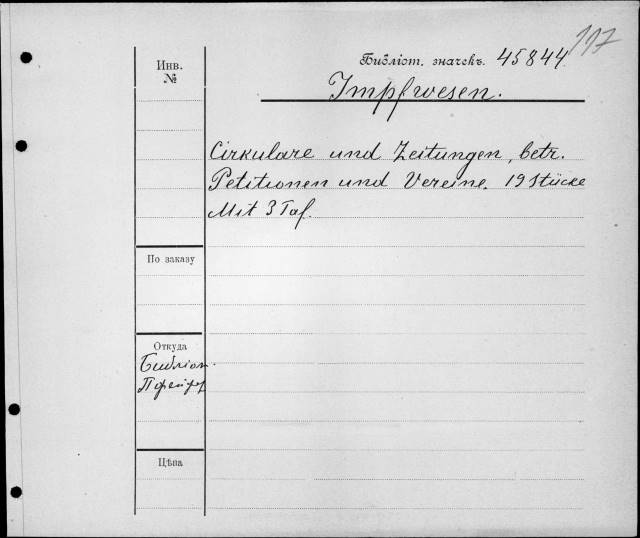 117
Инв.
№
Библіот. значекъ. 45844
Impfwesen.
Cirkulare und Zeitungen, betr.
Petitionen und Vereine. 19 Stücke
Mit 3 Taf.
По заказу
Откуда
Библіот.
Пфейфер
Цѣна